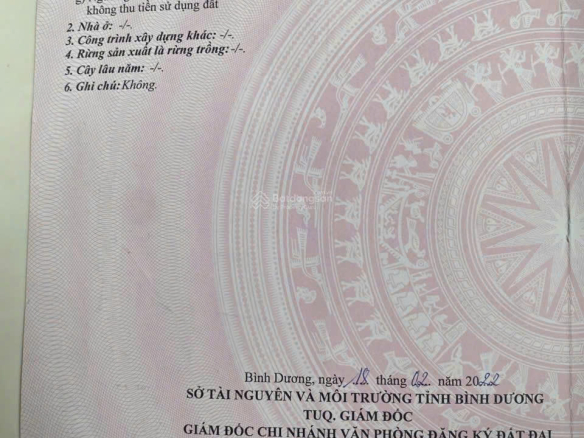 không thu tiền sử dụng đất
2. Nhà ở: -/-.
3. Công trình xây dựng khác: -/-.
4. Rừng sản xuất là rừng trồng: -/-.
5. Cây lâu năm: -/-.
6. Ghi chú: Không.
Batdongsan
Bình Dương, ngày 18 tháng 02. năm 2022
SỞ TÀI NGUYÊN VÀ MÔI TRƯỜNG TỈNH BÌNH DƯƠNG
TUQ. GIÁM ĐỐC
GIÁM ĐỐC CHI NHÁNH VĂN PHÒNG ĐĂNG KÝ ĐẤT ĐAI